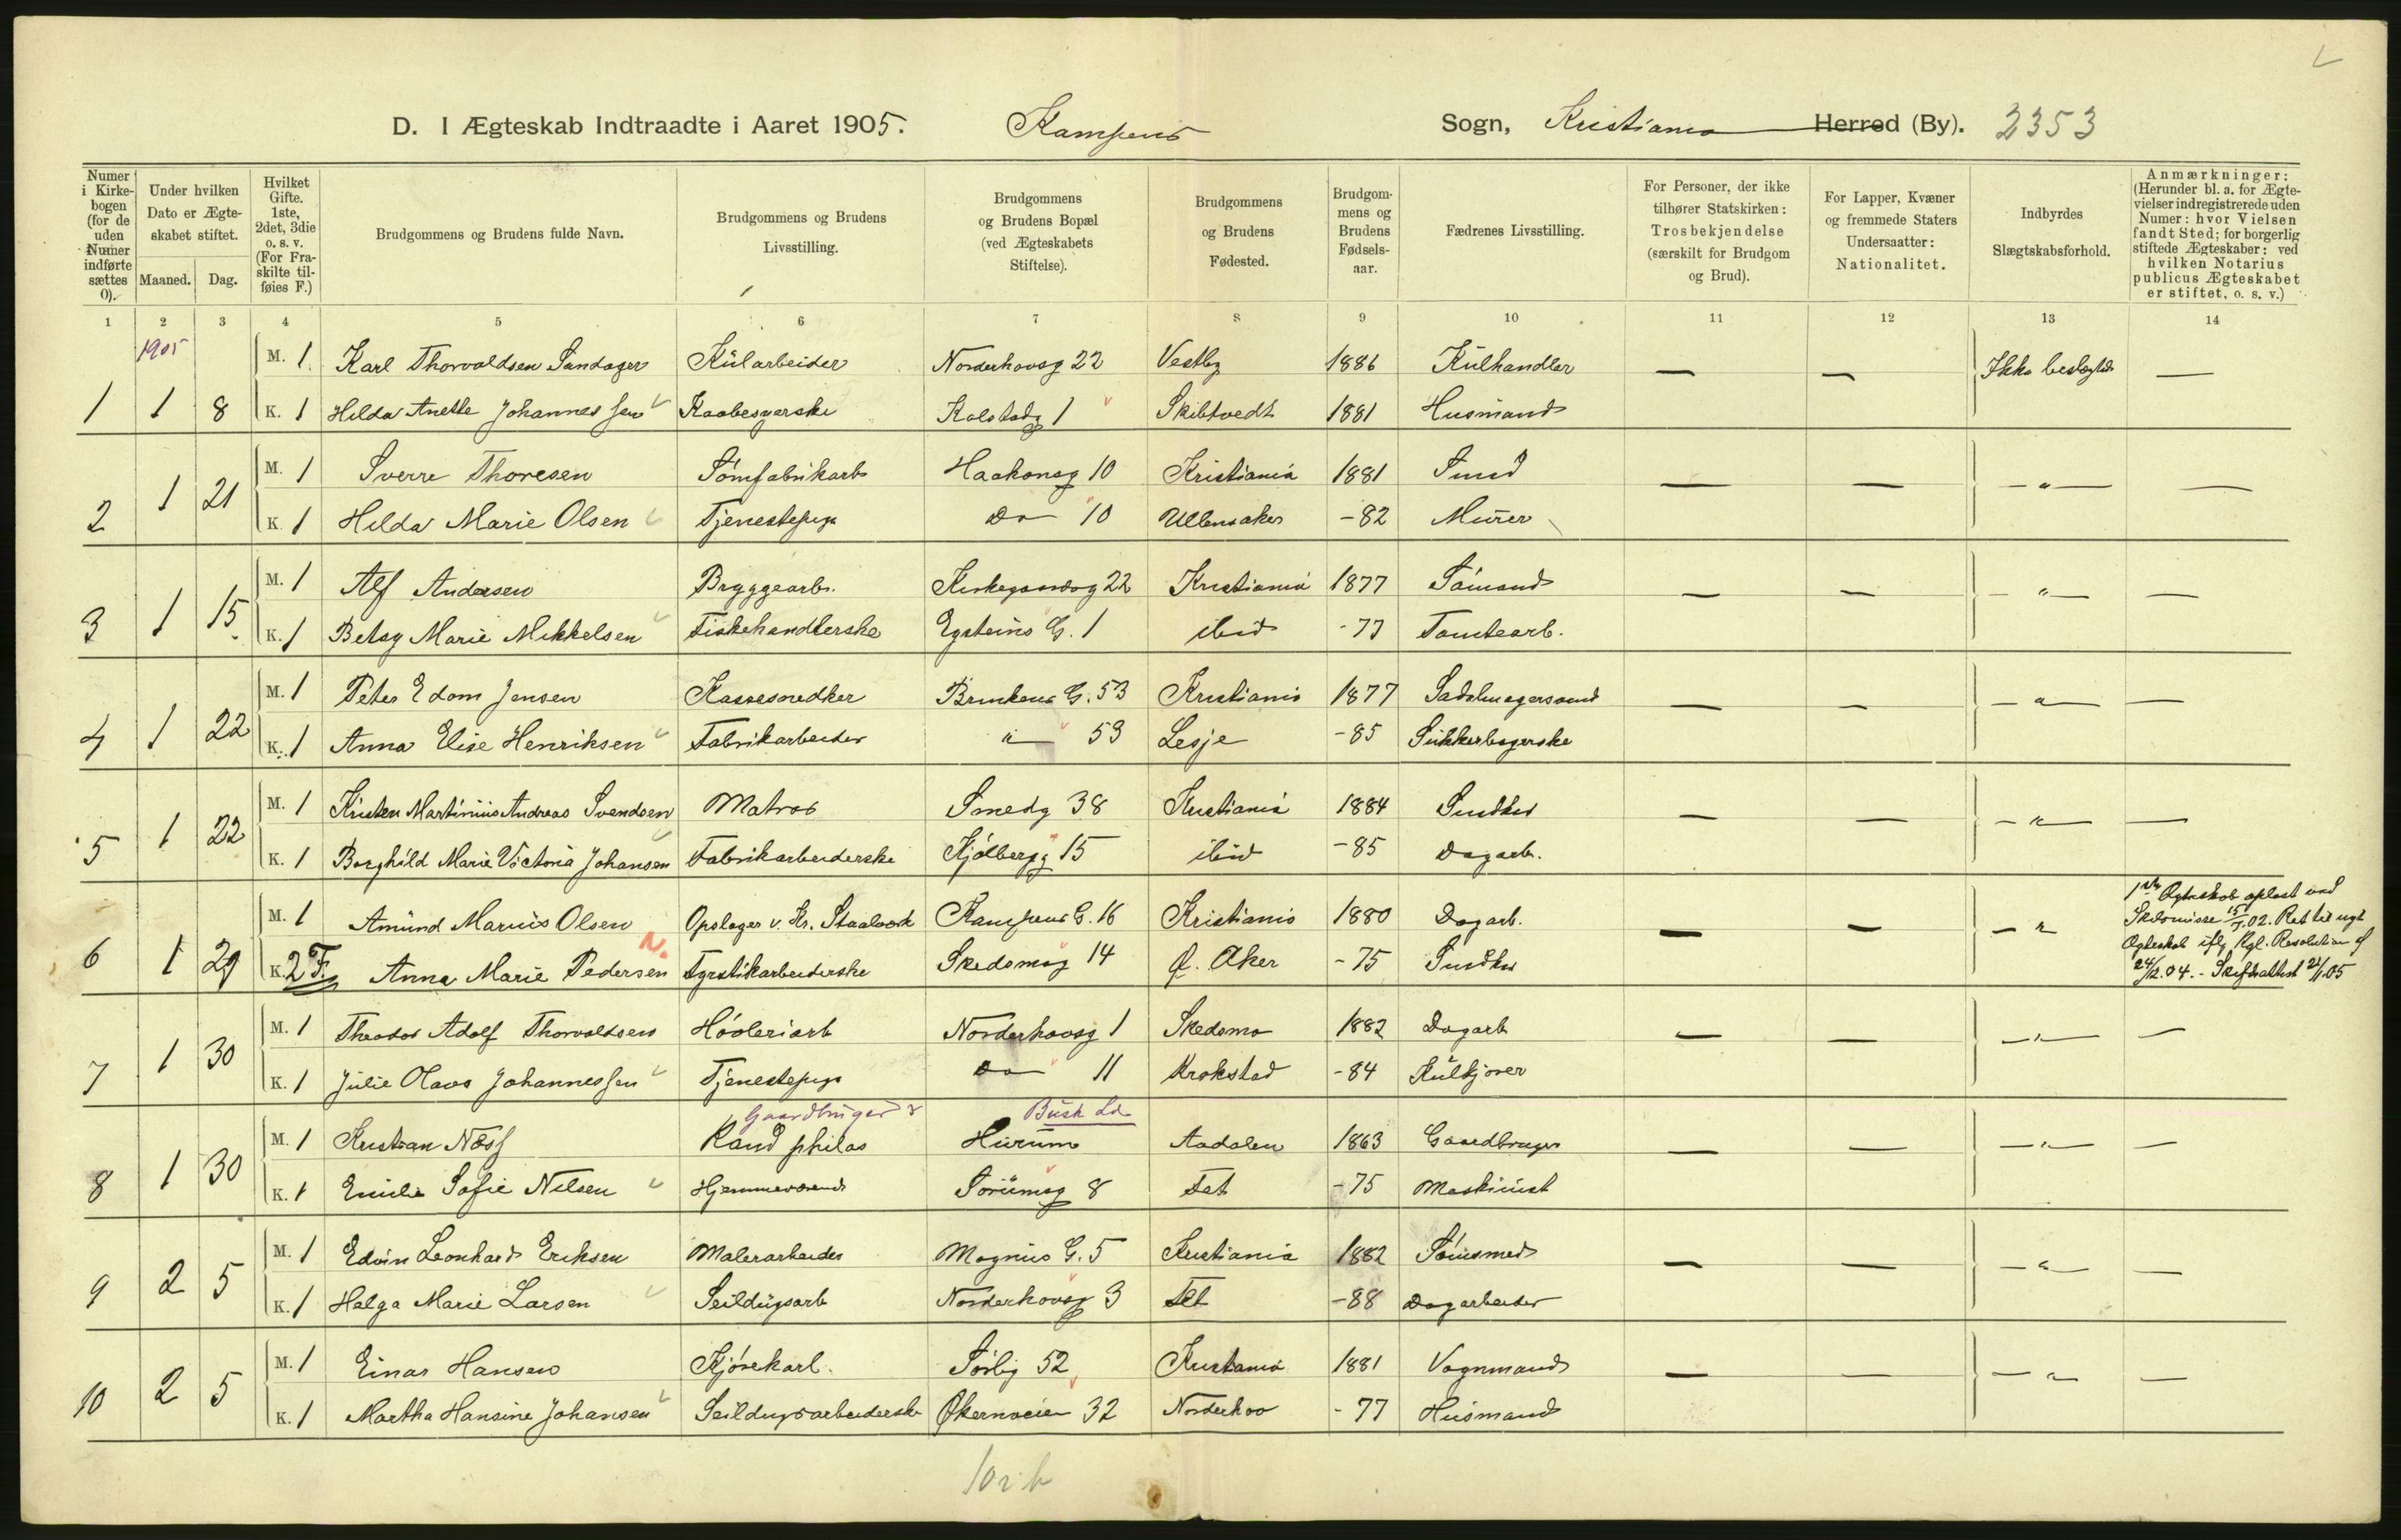 D. I Ægteskab Indtraadte i Aaret 1905. Kampens Sogn, Kristiania Herred (By). 2353
Numer i Kirkebogen (for de uden Numer indførte sættes 0).
Under hvilken Dato er Ægteskabet stiftet.
Maaned. Dag.
Hvilket Gifte. 1ste, 2det, 3die o. s. v. (For Fraskilte tilføies F.)
Brudgommens og Brudens fulde Navn.
Brudgommens og Brudens Livsstilling.
Brudgommens og Brudens Bopæl (ved Ægteskabets Stiftelse).
Brudgommens og Brudens Fødested.
Brudgommens og Brudens Fødselsaar.
Fædrenes Livsstilling.
For Personer, der ikke tilhører Statskirken: Trosbekjendelse (særskilt for Brudgom og Brud).
For Lapper, Kvæner og fremmede Staters Undersaatter: Nationalitet.
Indbyrdes Slægtskabsforhold.
Anmærkninger: (Herunder bl. a. for Ægtevielser indregistrerede uden Numer: hvor Vielsen fandt Sted; for borgerlig stiftede Ægteskaber: ved hvilken Notarius publicus Ægteskabet er stiftet, o. s. v.)
1 2 3 4 5 6 7 8 9 10 11 12 13 14
1905
M. 1 Karl Thorvaldsen Sandager Kularbeider Norderhovsg 22 Vestby 1886 Kulhandler — — Ikke beslægtede —
1 1 8 K. 1 Hilda Anette Johannessen Kaabesyerske Kolstadg 1 Skibtvedt 1881 Husmand
M. 1 Sverre Thoresen Sømfabrikarb Haakonsg 10 Kristiania 1881 Smed — — — " — —
2 1 21 K. 1 Hilda Marie Olsen Tjenestepige Do 10 Ullensaker -82 Murer
M. 1 Alf Andersen Bryggearb. Kirkegaardsg 22 Kristiania 1877 Sømand — — — " — —
3 1 15 K. 1 Betsy Marie Mikkelsen Fiskehandlerske Egsteins G. 1 ibid -77 Tomtearb.
M. 1 Peter Edom Jensen Kassesnedker Brinkens G. 53 Kristiania 1877 Sadelmagersvend — — — " — —
4 1 22 K. 1 Anna Elise Henriksen Fabrikarbeider " 53 Lesje -85 Sukkerbagerske
M. 1 Kristen Martinius Andreas Svendsen Matros Smedg 38 Kristiania 1884 Snedker — — — " — —
5 1 22 K. 1 Borghild Marie Victoria Johansen Fabrikarbeiderske Kjølbergg 15 ibid -85 Dagarb.
M. 1 Amund Marius Olsen Opslager v. Kr. Staalværk Kampens G. 16 Kristiania 1880 Dagarb. — — — "
6 1 29 K. 2 F. Anna Marie Pedersen N. Fyrstikarbeiderske Skedsmog 14 Ø. Aker -75 Snedker
1ste Ægteskab opløst ved
Skilsmisse 15/7.02. Ret til nyt
Ægteskab iflg Kgl. Resolution af
24/12.04. - Skifteattest 21/1.05
M. 1 Theodor Adolf Thorvaldsen Høvleriarb Norderhovsg 1 Skedsmo 1882 Dagarb — — — " — —
7 1 30 K. 1 Julie Olava Johannessen Tjenestepige Do 11 Krokstad -84 Kulkjører
Gaardbruger Busk Ld.
M. 1 Kristian Næss Kand philos Hurum Aadalen 1863 Gaardbruger — — — " — —
8 1 30 K. 1 Emilie Sofie Nilsen Hjemmeværende Sørumsg 8 Fet -75 Maskinist
M. 1 Edvin Leonhard Eriksen Malerarbeider Magnus G. 5 Kristiania 1882 Sømsmed — — — " — —
9 2 5 K. 1 Helga Marie Larsen Seildugsarb Norderhovsg 3 Fet -88 Dagarbeider
M. 1 Einar Hansen Kjørekarl. Sørlig 52 Kristiania 1881 Vognmand — — — " — —
10 2 5 K. 1 Martha Hansine Johansen Seildugsarbeiderske Økernveien 32 Norderhov -77 Husmand